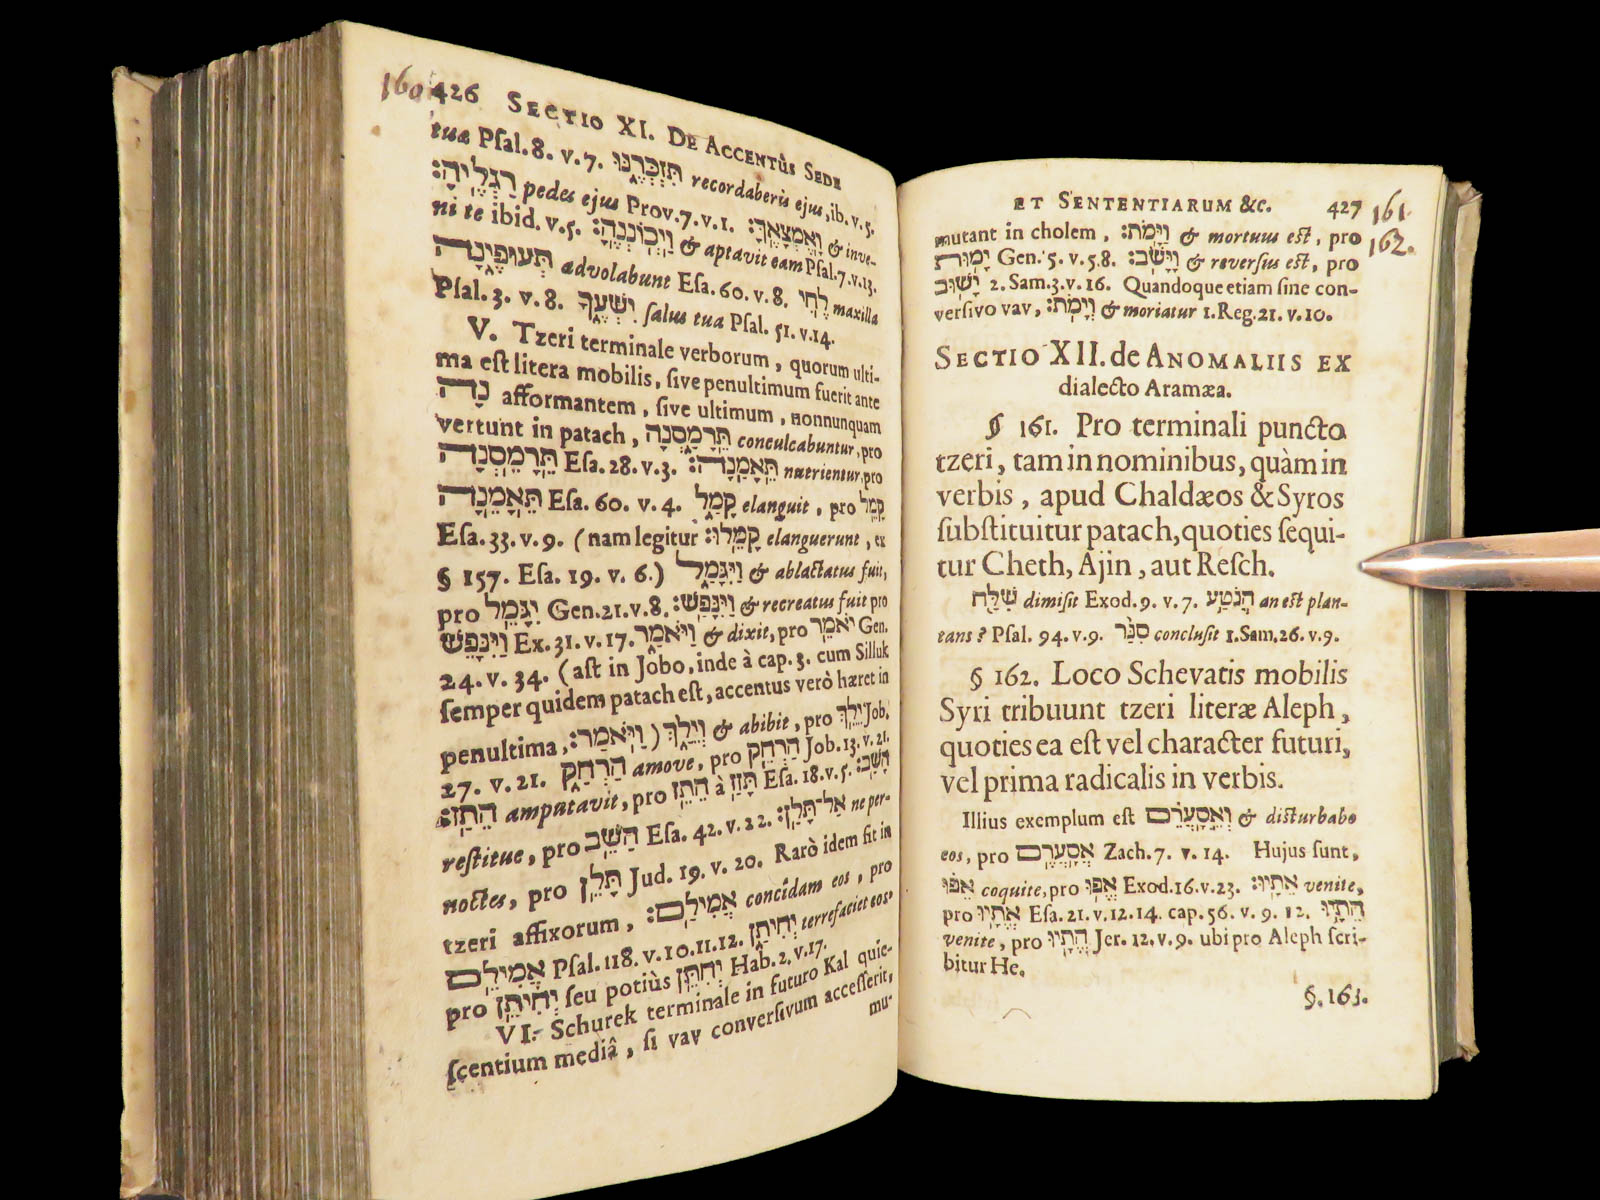 160 426 SECTIO XI. DE ACCENTÛS SEDE
tuæ Pſal. 8. v. 7. תִּזְכְּרֶנּוּ recordaberis ejus, ib. v. 5.
רַגְלֶיהָ׃ pedes ejus Prov. 7. v. 1. וָאֶמְצָאֶךָּ׃ & inve-
ni te ibid. v. 5. וַיְכוֹנְנֶהָ׃ & aptavit eam Pſal. 7. v. 13.
תְּעוּפֶינָה advolabunt Eſa. 60. v. 8. לֶחִי maxilla
Pſal. 3. v. 8. יִשְׁעֶךָ ſalus tua Pſal. 51. v. 14.
V. Tzeri terminale verborum, quorum ulti-
ma eſt litera mobilis, ſive penultimum fuerit ante
נָה afformantem, ſive ultimum, nonnunquam
vertunt in patach, תֵּרָמַסְנָה conculcabuntur, pro
תֵּרָמֵסְנָה Eſa. 28. v. 3. תֵּאָמַנָה׃ nutrientur, pro
תֵּאָמֵנָה Eſa. 60. v. 4. קָמַל elanguit, pro קָמֵל
Eſa. 33. v. 9. (nam legitur קָמֵלוּ׃ elanguerunt, ex
§ 157. Eſa. 19. v. 6.) וַיִּגָּמַל & ablactatus fuit,
pro יִגָּמֵל Gen. 21. v. 8. וַיִּנָּפַשׁ׃ & recreatus fuit pro
וַיִּנָּפֵשׁ Ex. 31. v. 17. וַיֹּאמַר & dixit, pro יֹאמֵר Gen.
24. v. 34. (aſt in Jobo, inde à cap. 3. cum Silluk
ſemper quidem patach eſt, accentus verò hæret in
penultima, וַיֹּאמַר׃) וְיֵלַךְ & abibit, pro יֵלֵךְ Job.
27. v. 21. הַרְחַק amove, pro הַרְחֵק Job. 13. v. 21.
הֵתַז׃ amputavit, pro הֵתֵז à תָּזַז Eſa. 18. v. 5. הָשַׁב׃
reſtitue, pro הָשֵׁב Eſa. 42. v. 22. אַל־תָּלַן׃ ne per-
noctes, pro תָּלֵן Jud. 19. v. 20. Rarò idem fit in
tzeri affixorum, אֲמִילַם׃ concidam eos, pro
אֲמִילֵם Pſal. 118. v. 10. 11. 12. יְחִיתַן terrefaciet eos,
pro יְחִיתֵן ſeu potiùs יְחִתֵּן Hab. 2. v. 17.
VI. Schurek terminale in futuro Kal quie-
ſcentium mediâ, ſi vav converſivum acceſſerit,
mu-
ET SENTENTIARUM &c. 427 161.
162.
mutant in cholem, וַיָּמֹת׃ & mortuus eſt, pro
יָמוּת Gen. 5. v. 5. 8. וַיָּשֹׁב׃ & reverſus eſt, pro
יָשׁוּב 2. Sam. 3. v. 16. Quandoque etiam ſine con-
verſivo vav, וְיָמֹת׃ & moriatur 1. Reg. 21. v. 10.
SECTIO XII. de ANOMALIIS EX
dialecto Aramæa.
§ 161. Pro terminali puncto
tzeri, tam in nominibus, quàm in
verbis, apud Chaldæos & Syros
ſubſtituitur patach, quoties ſequi-
tur Cheth, Ajin, aut Reſch.
שִׁלַּח dimiſit Exod. 9. v. 7. הֲנֹטַע an eſt plan-
tans? Pſal. 94. v. 9. סִגַּר concluſit 1. Sam. 26. v. 9.
§ 162. Loco Schevatis mobilis
Syri tribuunt tzeri literæ Aleph,
quoties ea eſt vel character futuri,
vel prima radicalis in verbis.
Illius exemplum eſt וְאֵסָעֲרֵם & diſturbabo
eos, pro אֲסָעֲרֵם Zach. 7. v. 14. Hujus ſunt,
אֵפוּ coquite, pro אֱפוּ Exod. 16. v. 23. אֵתָיוּ׃ venite,
pro אֱתָיוּ Eſa. 21. v. 12. 14. cap. 56. v. 9. 12. הֵתָיוּ
venite, pro הֱתָיוּ Jer. 12. v. 9. ubi pro Aleph ſcri-
bitur He.
§. 163.